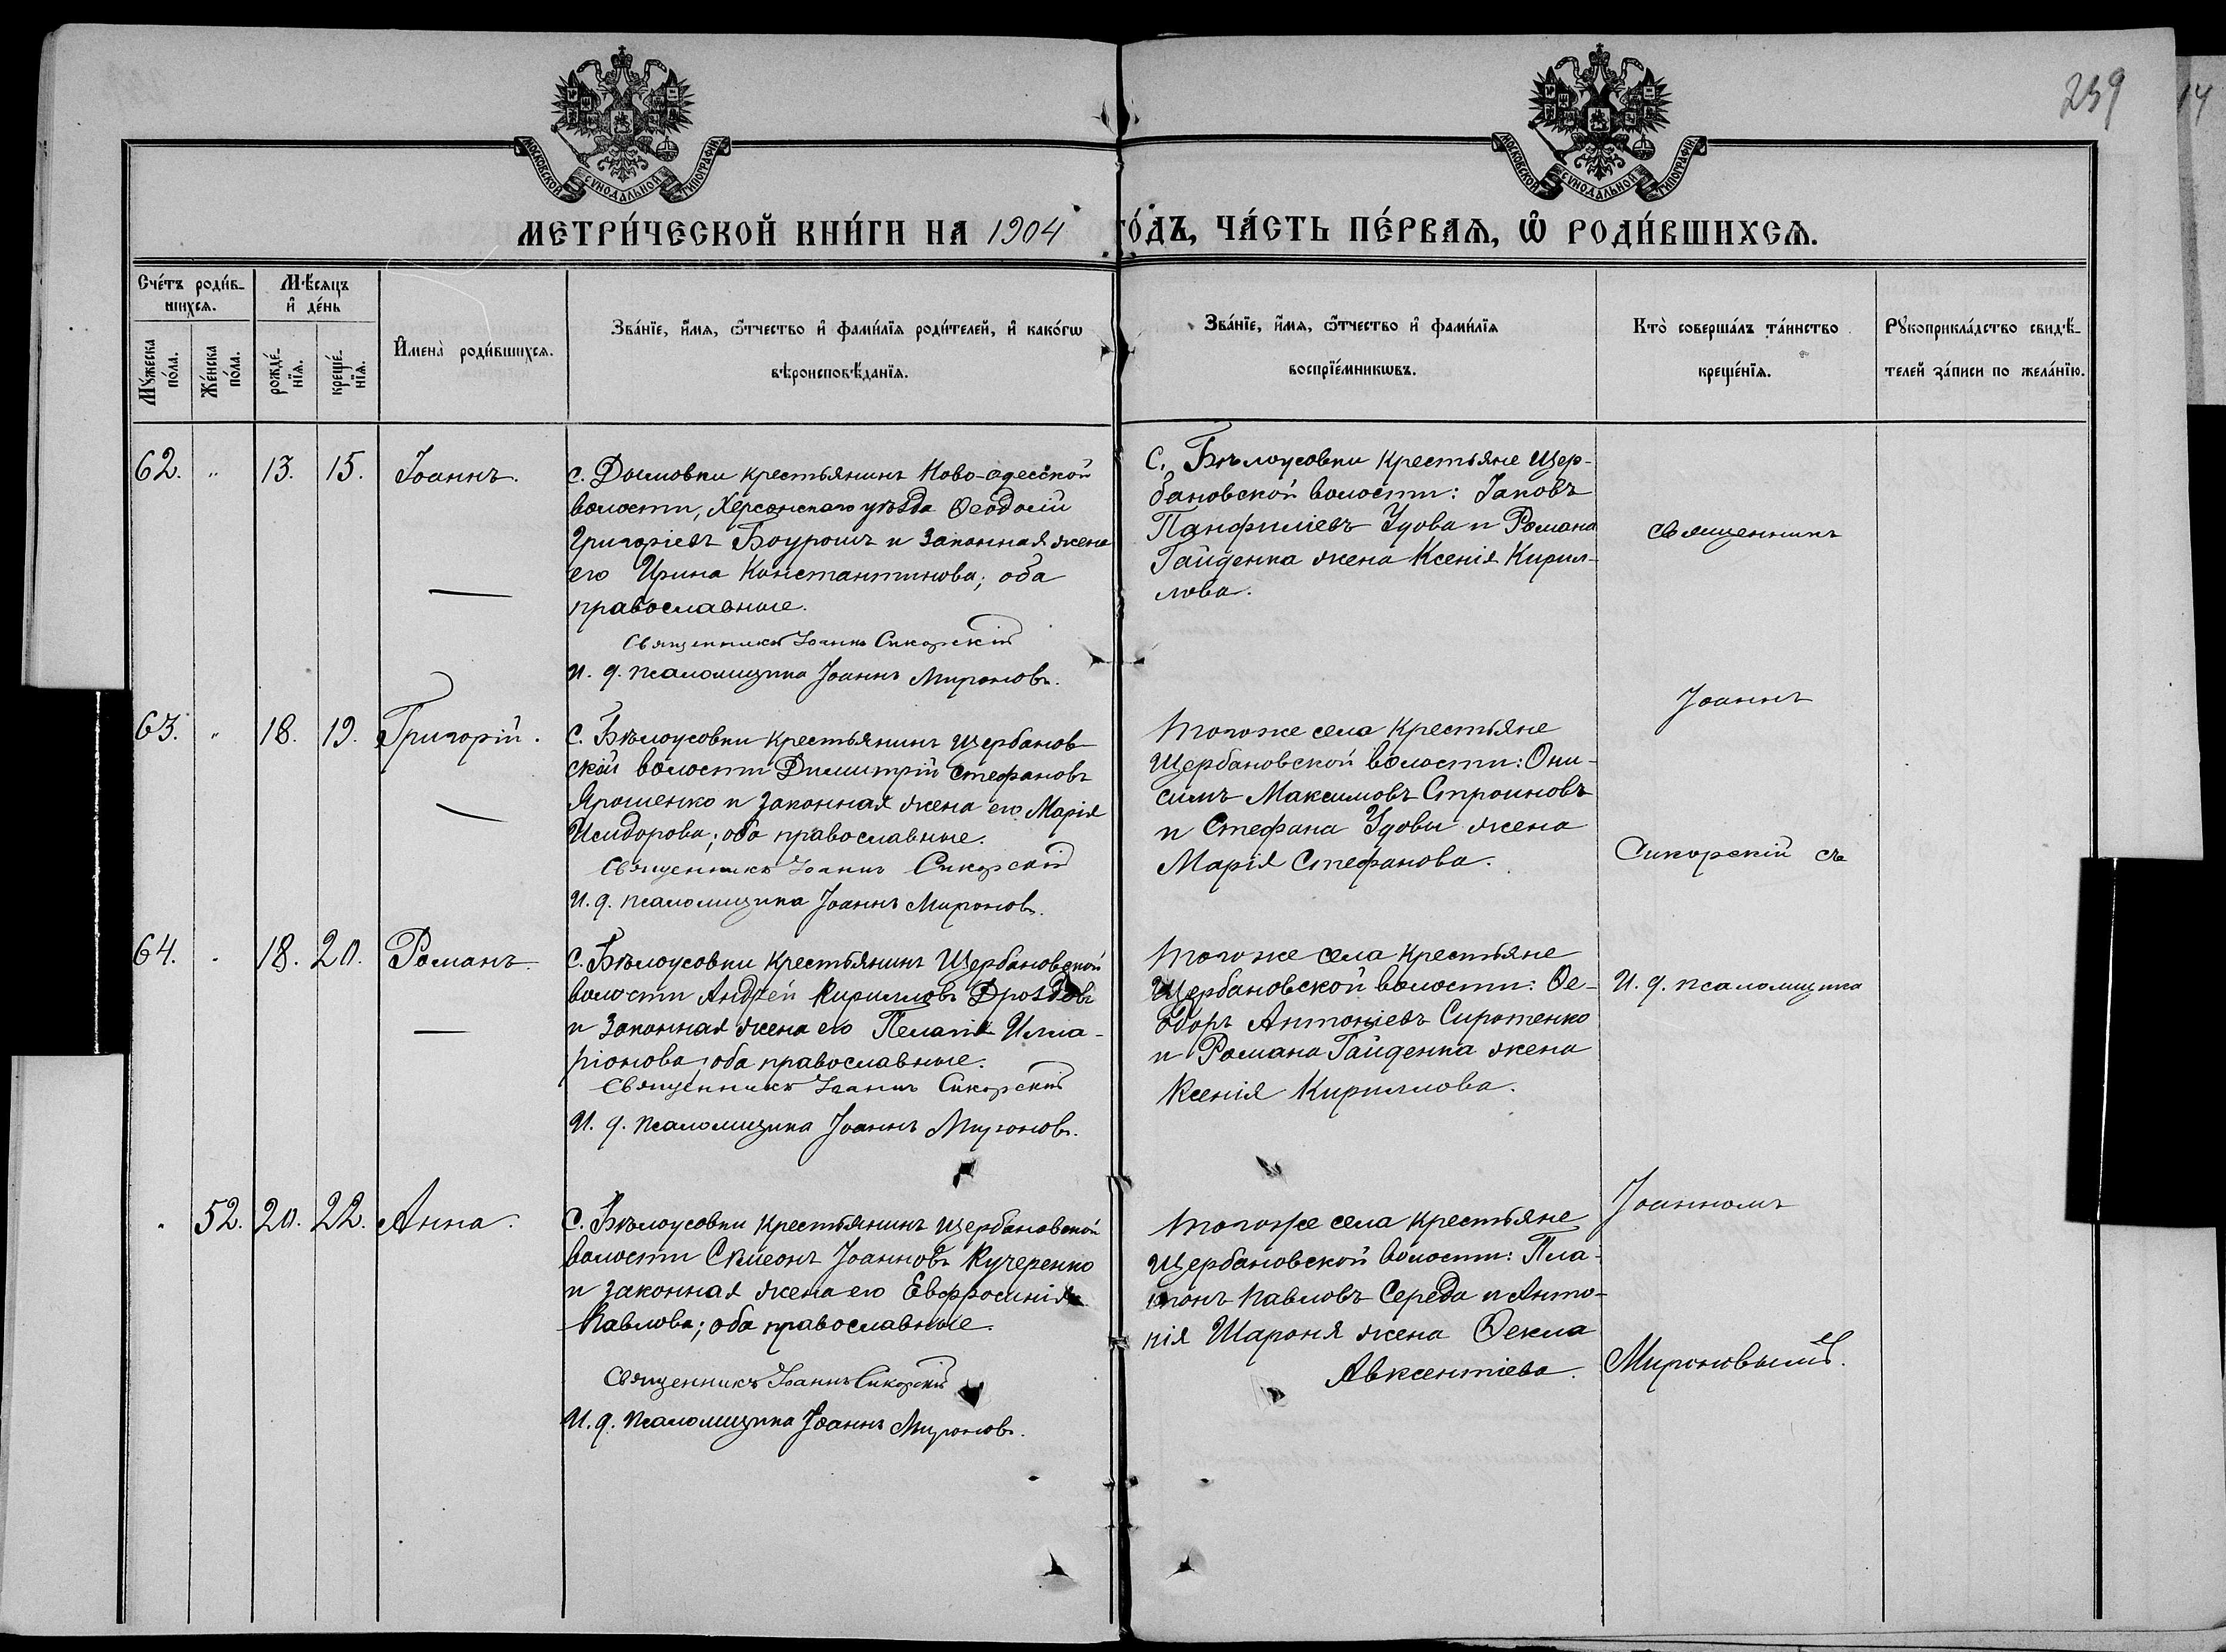 239
14
МОСКОВСКОЙ СѴНОДАЛЬНОЙ ТИПОГРАФІИ
МОСКОВСКОЙ СѴНОДАЛЬНОЙ ТИПОГРАФІИ
МЕТРИ́ЧЕСКОЙ КНИ́ГИ НА 1904 ГО́ДЪ, ЧА́СТЬ ПЕ́РВАѦ, Ѡ҆ РОДИ́ВШИХСѦ.
Сче́тъ роди́в-
шихсѧ.
Мѣ́сѧцъ
и҆ де́нь
Мꙋ́жеска
по́ла.
Же́нска
по́ла.
рожде́-
нїѧ.
креще́-
нїѧ.
И҆мена̀ роди́вшихсѧ.
Зва́нїе, и҆́мѧ, ѻ҆́тчество и҆ фами́лїѧ роди́телей, и҆ како́гѡ
вѣроисповѣ́данїѧ.
Зва́нїе, и҆́мѧ, ѻ҆́тчество и҆ фами́лїѧ
воспрїе́мникѡвъ.
Кто̀ соверша́лъ та́инство
креще́нїѧ.
Рꙋкоприкла́дство свидѣ́-
телей за́писи по жела́нїю.
62. " 13. 15. Іоаннъ.
с. Дымовки крестьянинъ Ново-одесской
волости, Херсонскаго уѣзда Ѳеодосій
Григоріевъ Боурошъ и законная жена
его Ирина Константинова; оба
православные.
Священникъ Іоаннъ Сикорскій
И. д. псаломщика Іоаннъ Мироновъ.
С. Бѣлоусовки крестьяне Щер-
бановской волости: Іаковъ
Панфиліевъ Удова и Романа
Гайденка жена Ксенія Кирил-
лова.
священникъ
Іоаннъ
63. " 18. 19. Григорій.
С. Бѣлоусовки крестьянинъ Щербанов-
ской волости Димитрій Стефановъ
Ярошенко и законная жена его Марія
Исидорова; оба православные.
Священникъ Іоаннъ Сикорскій
И. д. псаломщика Іоаннъ Мироновъ.
Того же села крестьяне
Щербановской волости: Они-
симъ Максимовъ Строиновъ
и Стефана Удовы жена
Марія Стефанова.
Сикорскій съ
64. " 18. 20. Романъ.
С. Бѣлоусовки крестьянинъ Щербановской
волости Андрей Кирилловъ Дроздовъ
и законная жена его Пелагія Илла-
ріонова; оба православные.
Священникъ Іоаннъ Сикорскій
И. д. псаломщика Іоаннъ Мироновъ.
Того же села крестьяне
Щербановской волости: Ѳе-
одоръ Антоніевъ Сиротенко
и Романа Гайденка жена
Ксенія Кириллова.
И. д. псаломщика
" 52. 20. 22. Анна.
С. Бѣлоусовки крестьянинъ Щербановской
волости Сѵмеонъ Іоанновъ Кучеренко
и законная жена его Евфросинія
Павлова; оба православные.
Священникъ Іоаннъ Сикорскій
И. д. псаломщика Іоаннъ Мироновъ.
Того же села крестьяне
Щербановской волости: Пла-
тонъ Павловъ Середа и Анто-
нія Шароня жена Ѳекла
Авксентіева.
Іоанномъ
Мироновымъ.